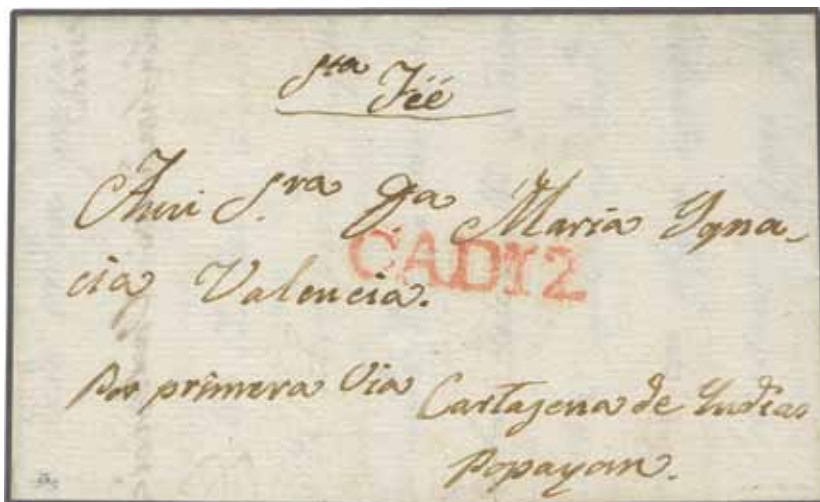 Sta Feé
A mi Sra Da Maria Ygna-
cia Valencia.
CADIZ
Por primera Via Cartajena de Yndias
Popayan.